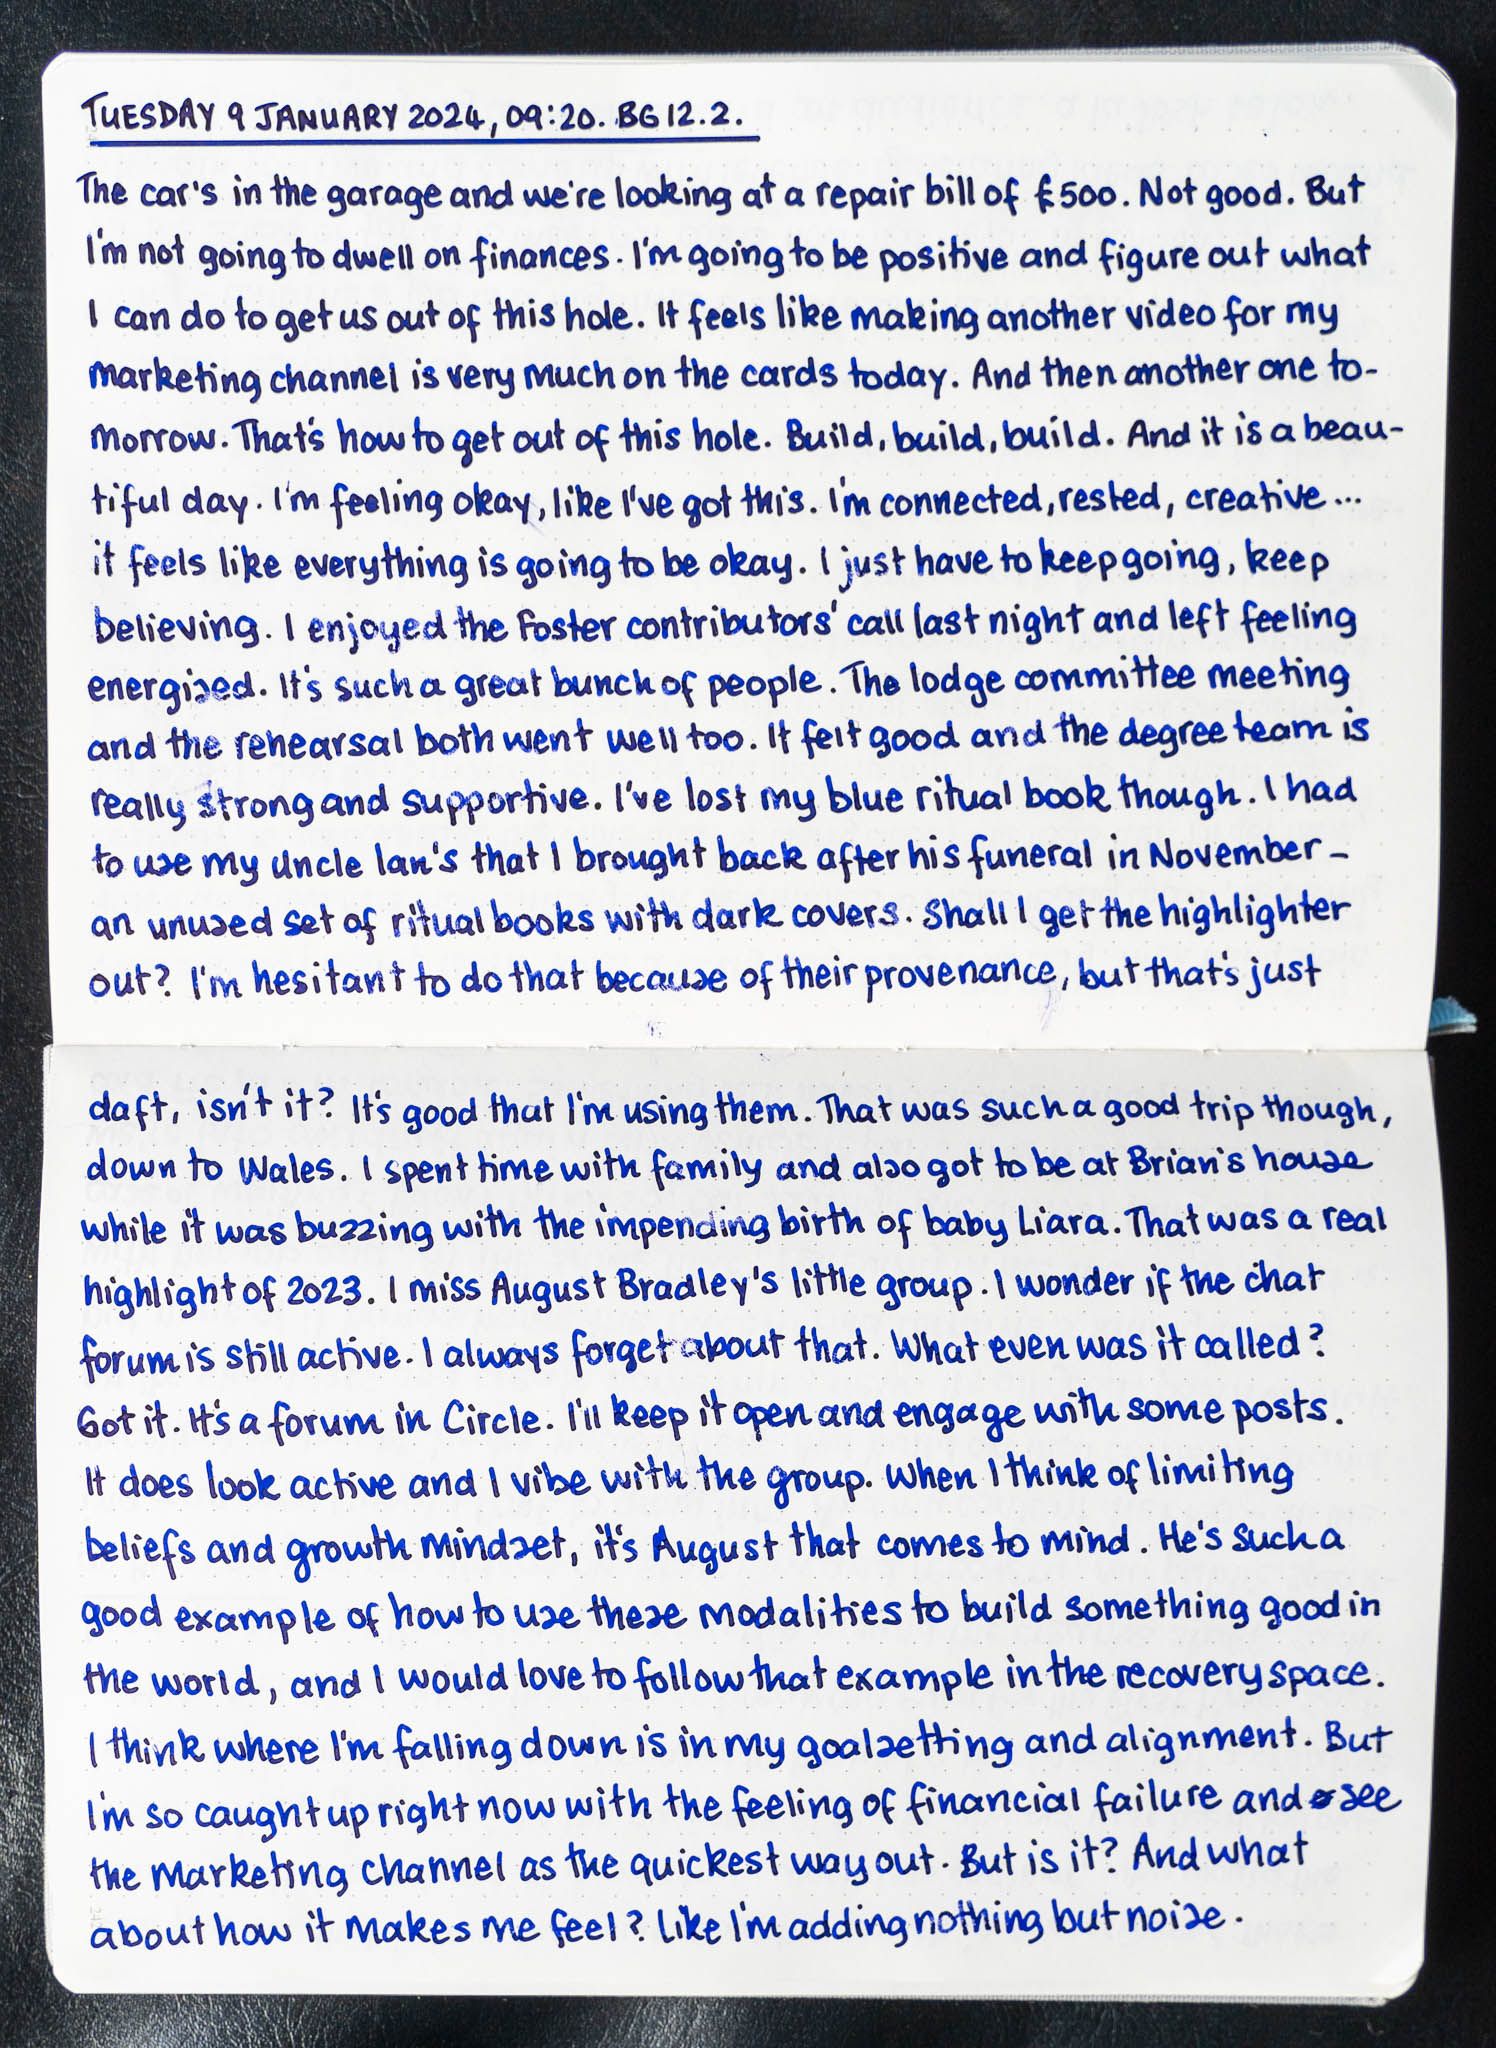 TUESDAY 9 JANUARY 2024, 09:20. BG 12.2.
The car's in the garage and we're looking at a repair bill of £500. Not good. But
I'm not going to dwell on finances. I'm going to be positive and figure out what
I can do to get us out of this hole. It feels like making another video for my
marketing channel is very much on the cards today. And then another one to-
morrow. That's how to get out of this hole. Build, build, build. And it is a beau-
tiful day. I'm feeling okay, like I've got this. I'm connected, rested, creative...
it feels like everything is going to be okay. I just have to keep going, keep
believing. I enjoyed the Foster contributors' call last night and left feeling
energised. It's such a great bunch of people. The lodge committee meeting
and the rehearsal both went well too. It felt good and the degree team is
really strong and supportive. I've lost my blue ritual book though. I had
to use my Uncle Ian's that I brought back after his funeral in November -
an unused set of ritual books with dark covers. Shall I get the highlighter
out? I'm hesitant to do that because of their provenance, but that's just
daft, isn't it? It's good that I'm using them. That was such a good trip though,
down to Wales. I spent time with family and also got to be at Brian's house
while it was buzzing with the impending birth of baby Liara. That was a real
highlight of 2023. I miss August Bradley's little group. I wonder if the chat
forum is still active. I always forget about that. What even was it called?
Got it. It's a forum in Circle. I'll keep it open and engage with some posts.
It does look active and I vibe with the group. When I think of limiting
beliefs and growth mindset, it's August that comes to mind. He's such a
good example of how to use these modalities to build something good in
the world, and I would love to follow that example in the recovery space.
I think where I'm falling down is in my goalsetting and alignment. But
I'm so caught up right now with the feeling of financial failure and see
the marketing channel as the quickest way out. But is it? And what
about how it makes me feel? Like I'm adding nothing but noise.